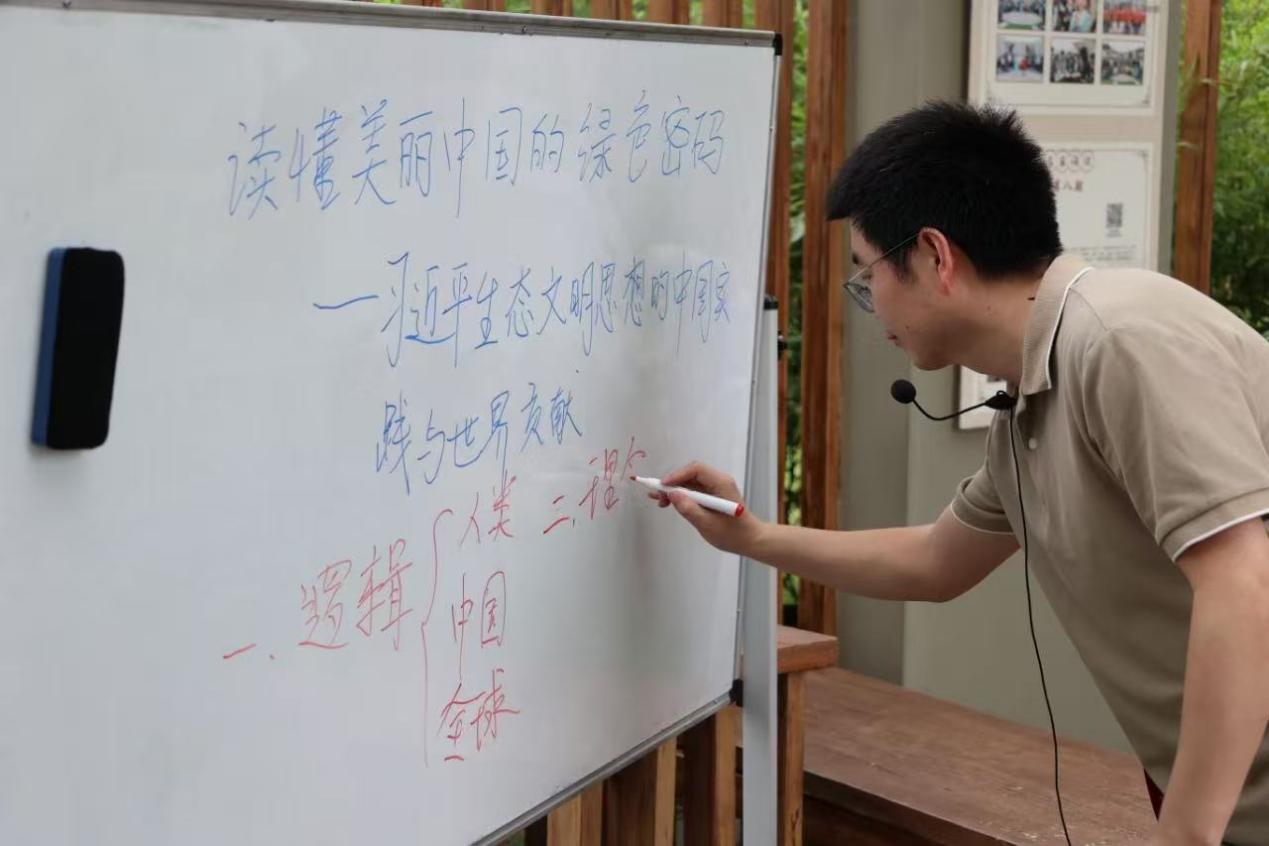 读懂美丽中国的绿色密码
一习近平生态文明思想的中国实
践与世界贡献
一、逻辑
人类
中国
全球
二、理念